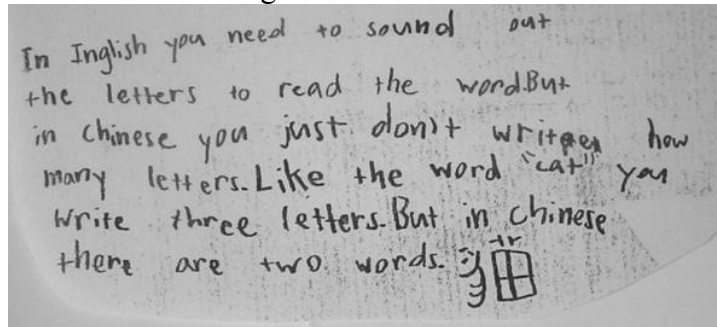 In Inglish you need to sound out
the letters to read the word.But
in chinese you just don't how
many letters.Like the word "cat" you
write three letters.But in chinese
there are two words. 猫